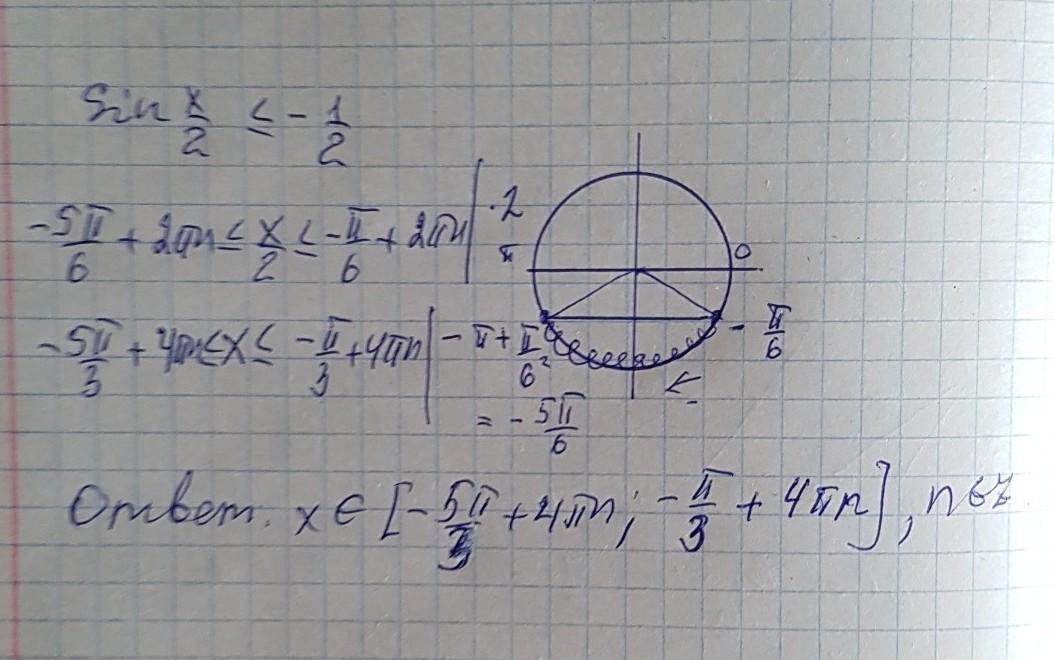 Sin x/2 ≤ - 1/2
-5π/6 + 2πn ≤ x/2 ≤ -π/6 + 2πn | ·2
-5π/3 + 4πn ≤ x ≤ -π/3 + 4πn |
π
0
- π/6
- π + π/6 =
= - 5π/6
Ответ. x ∈ [-5π/3 + 4πn; -π/3 + 4πn], n ∈ Z.